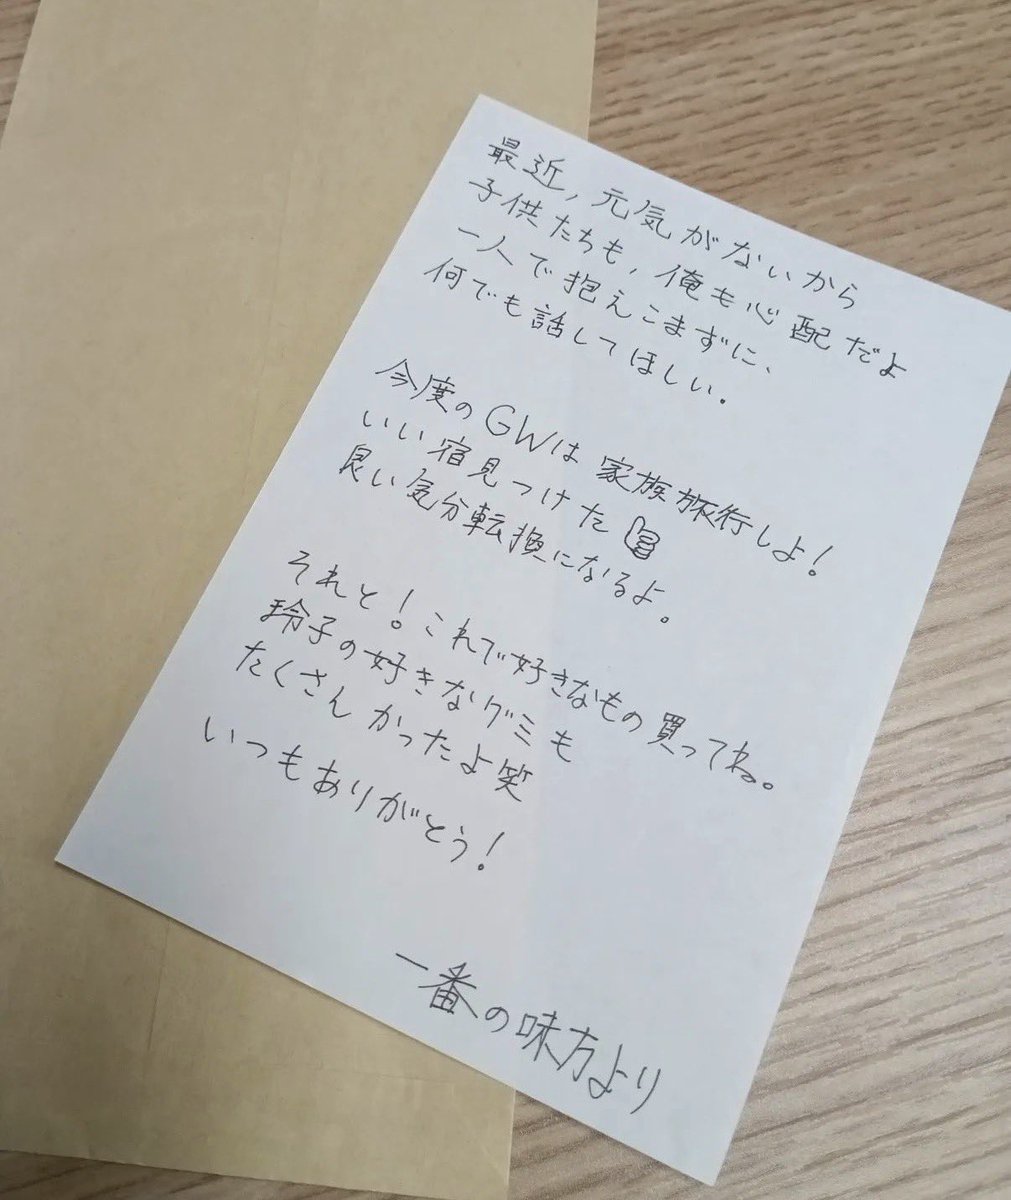 最近，元気がないから
子供たちも，俺も心配だよ
一人で抱えこまずに、
何でも話してほしい．
今度のGWは家族旅行しよ！
いい宿見つけた
良い気分転換になるよ。
それと！これで好きなもの買ってね。
玲子の好きなグミも
たくさんかったよ笑
いつもありがとう！
一番の味方より